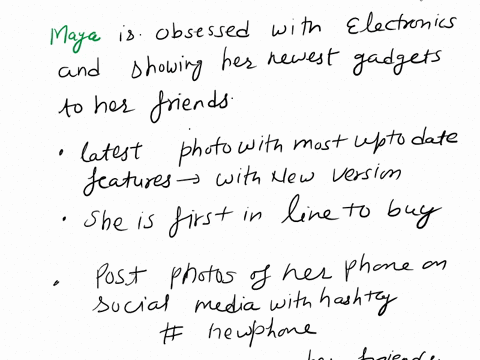 Maya is obsessed with Electronics
and showing her newest gadgets
to her friends.
• latest photo with most upto date
features → with New version
• She is first in line to buy
• Post photos of her phone on
social media with hashtag
# newphone
her friends